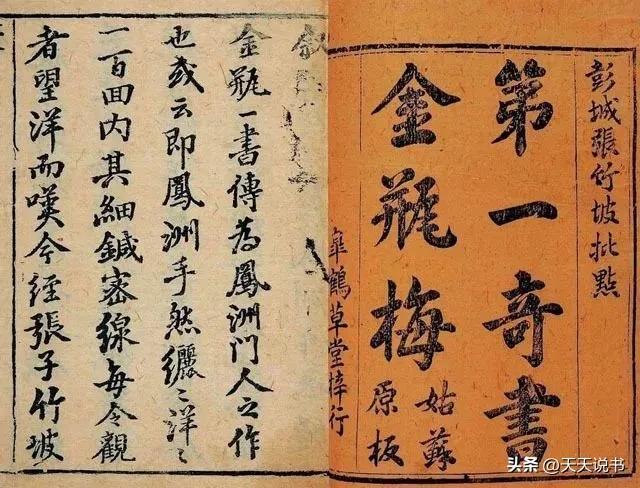 彭城張竹坡批點
第一奇書
金瓶梅
姑蘇
原板
皐鶴草堂梓行
金瓶一書傳為鳳洲門人之作
也或云即鳳洲手然纚〻洋〻
一百回内其細鍼密線每令觀
者望洋而嘆今經張子竹坡
头条 @天天说书